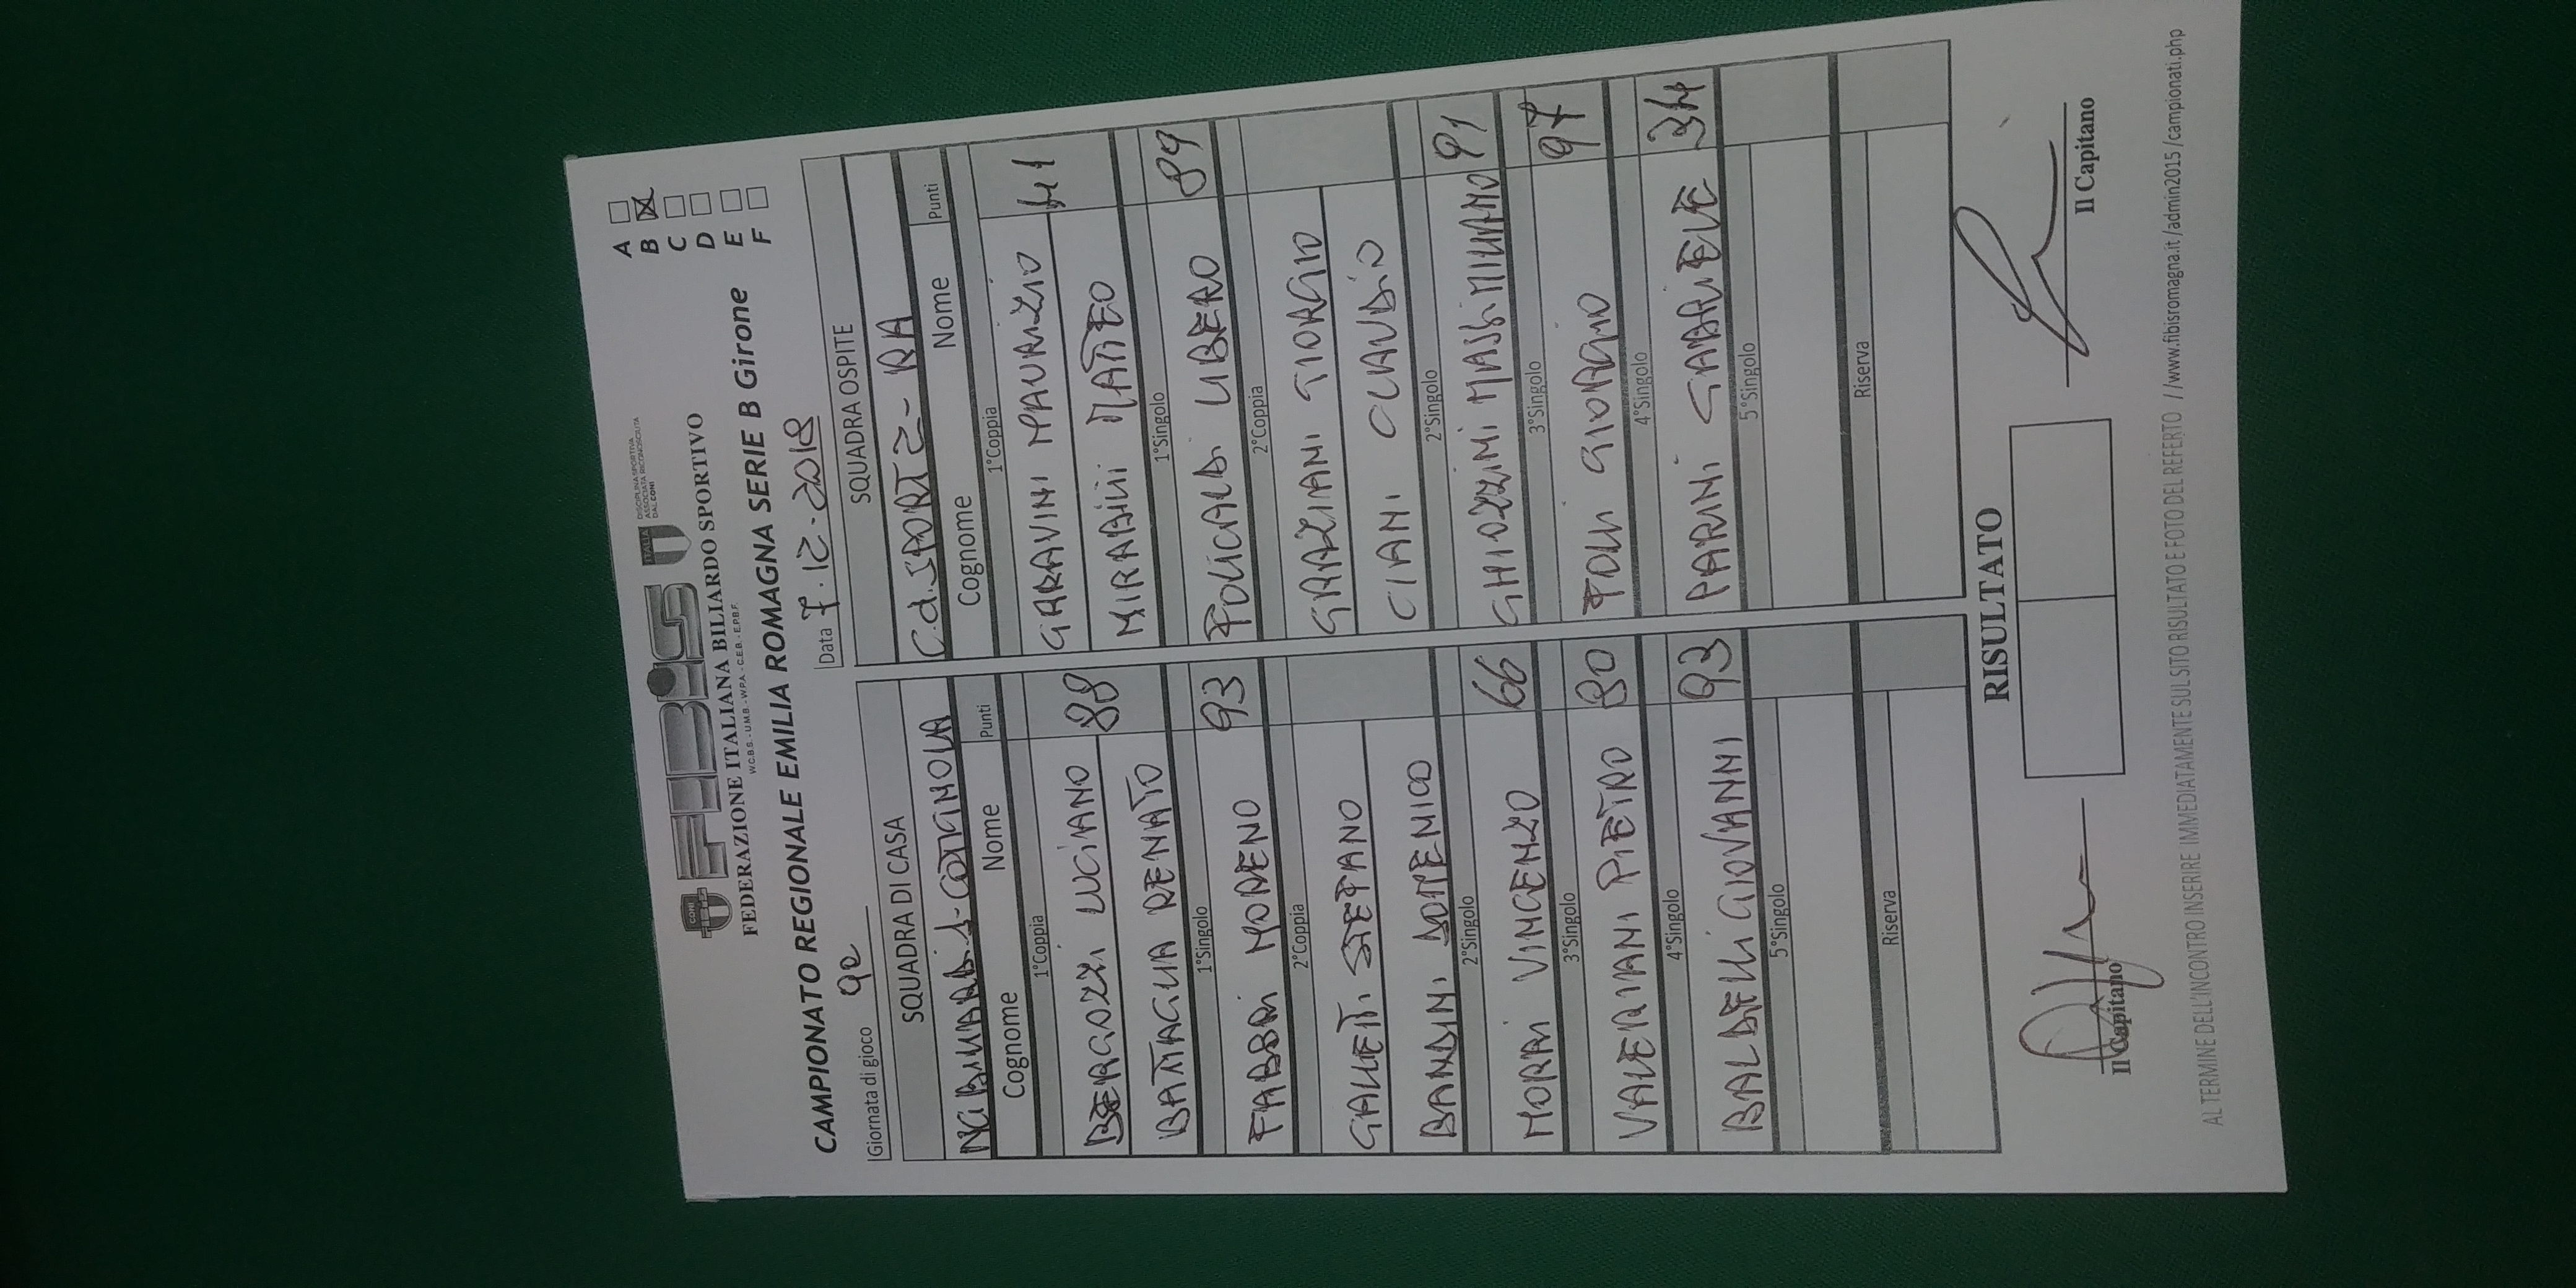 CONI
FIBiS
ITALIA
DISCIPLINA SPORTIVA
ASSOCIATA RICONOSCIUTA
DAL CONI
FEDERAZIONE ITALIANA BILIARDO SPORTIVO
W.C.B.S. - U.M.B. - W.P.A. - C.E.B. - E.P.B.F.
CAMPIONATO REGIONALE EMILIA ROMAGNA SERIE B Girone
A
B X
C
D
E
F
Giornata di gioco 9a
Data 7.12.2018
SQUADRA DI CASA
COTIGNOLA
Cognome Nome Punti
1°Coppia
BERGOZZI LUCIANO 88
BATTAGLIA RENATO
1°Singolo
FABBRI MORENO 93
2°Coppia
GALLETTI STEFANO
BANDINI DOMENICO
2°Singolo
MORRI VINCENZO 66
3°Singolo
VALERIANI PIETRO 80
4°Singolo
BALDELLI GIOVANNI 93
5°Singolo
Riserva
SQUADRA OSPITE
C.d. SPORT 2 - RA
Cognome Nome Punti
1°Coppia
GARAVINI MAURIZIO
MIRABILI MATTEO
1°Singolo
FOLICALDI LIBERO 89
2°Coppia
GRAZIANI GIORGIO
CIANI CLAUDIO
2°Singolo
GHIOZZINI MASSIMILIANO 91
3°Singolo
FOLLI GIORGIO 97
4°Singolo
PARINI GABRIELE 34
5°Singolo
Riserva
RISULTATO
Il Capitano
Il Capitano
AL TERMINE DELL'INCONTRO INSERIRE IMMEDIATAMENTE SUL SITO RISULTATO E FOTO DEL REFERTO //www.fibisromagna.it/admin2015/campionati.php